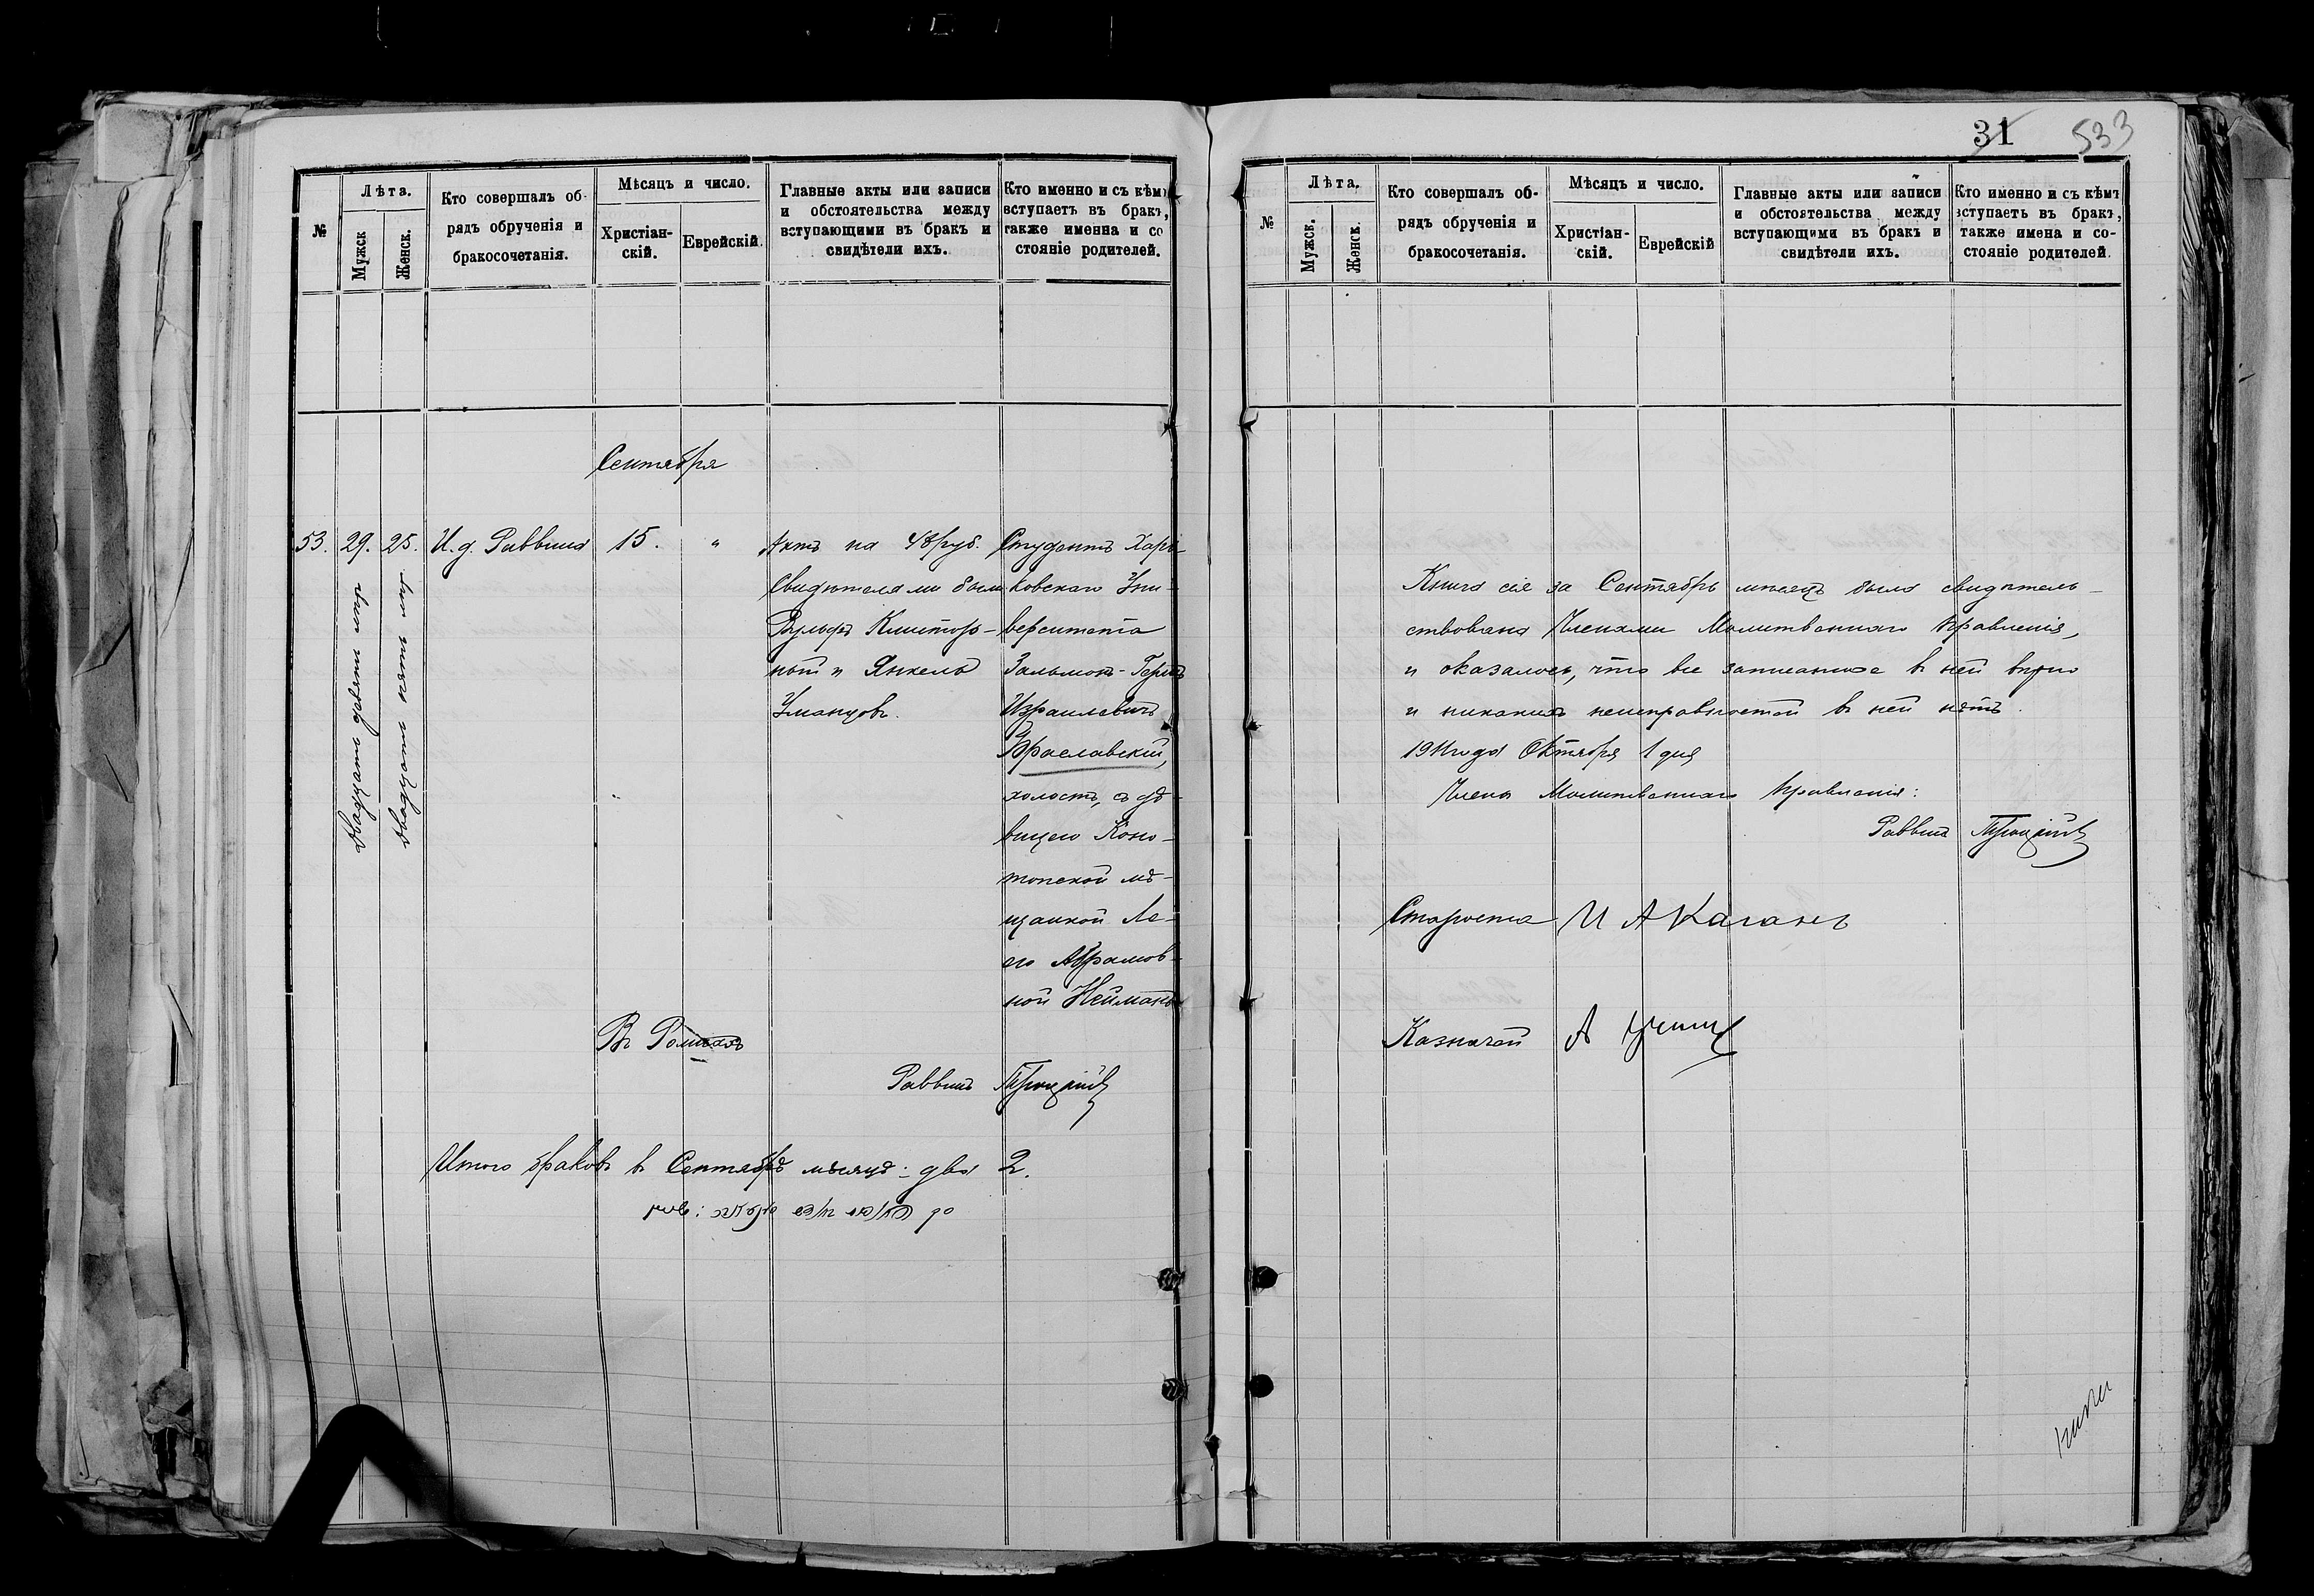 31 533
№
Лѣта.
Мужск
Женск.
Кто совершалъ об-
рядъ обрученія и
бракосочетанія.
Мѣсяцъ и число.
Христіан-
скій.
Еврейскій.
Главные акты или записи
и обстоятельства между
вступающими въ бракъ и
свидѣтели ихъ.
Кто именно и съ кѣмъ
вступаетъ въ бракъ,
также именна и со
стояніе родителей.
Сентября
53. 29. 25. И. д. Раввина 15. "
двадцать девять
двадцать пять лет
Актъ на 48 руб.
Свидѣтелями были
Вульфъ Клитор-
ный и Янкель
Уманцовъ.
Студентъ Харь-
ковскаго Уни-
верситета
Зальмонъ-Гершъ
Израилевичъ
Браславскій,
холостъ, съ дѣ-
вицею Коно-
топской мѣ-
щанкой Ле-
ею Абрамов-
ной Нейманъ
Въ Ромнахъ
Раввинъ
Итого браковъ въ Сентябрѣ мѣсяцѣ: два 2.
№
Лѣта.
Мужск.
Женск.
Кто совершалъ об-
рядъ обрученія и
бракосочетанія.
Мѣсяцъ и число.
Христіан-
скій.
Еврейскій
Главные акты или записи
и обстоятельства между
вступающими въ бракъ и
свидѣтели ихъ.
Кто именно и съ кѣмъ
вступаетъ въ бракъ,
также имена и со-
стояніе родителей.
Книга сія за Сентябрь мѣсяцъ была свидѣтель-
ствована Членами Молитвеннаго Правленія,
и оказалось, что все записанное въ ней вѣрно
и никакихъ неисправностей въ ней нѣтъ.
1911 года Октября 1 дня
Члены Молитвеннаго Правленія:
Раввинъ
Староста И А Каганъ
Казначей А